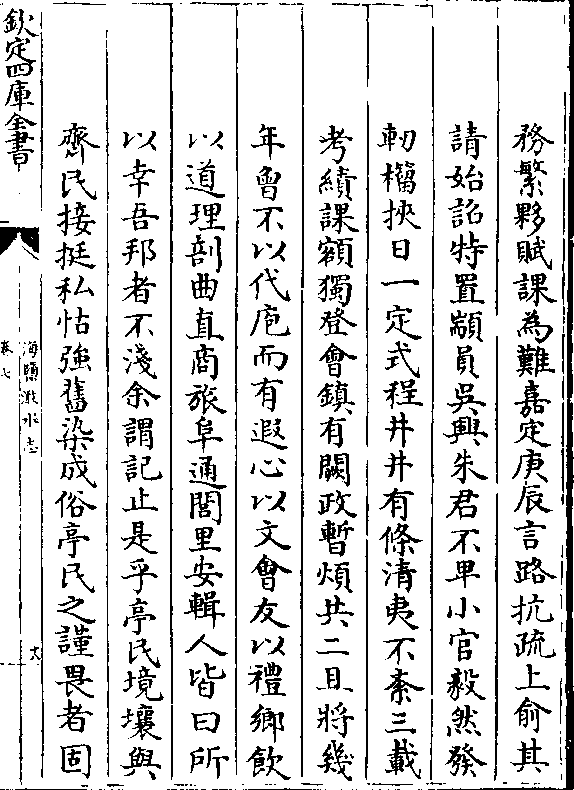 務繁夥賦課為難嘉定庚辰言路抗疏上俞其
請始詔特置顓員吳興朱君不卑小官毅然發
軔㰚挾日一定式程井井有條清夷不紊三載
考績課額獨登會鎮有闕政暫煩共二且將幾
年曾不以代庖而有遐心以文會友以禮鄉飲
以道理剖曲直商旅阜通閭里安輯人皆曰所
以幸吾邦者不淺余謂記止是乎亭民境壤與
齊民接挺私怙強舊染成俗亭民之謹畏者固
欽定四庫全書
海鹽澉水志
卷七